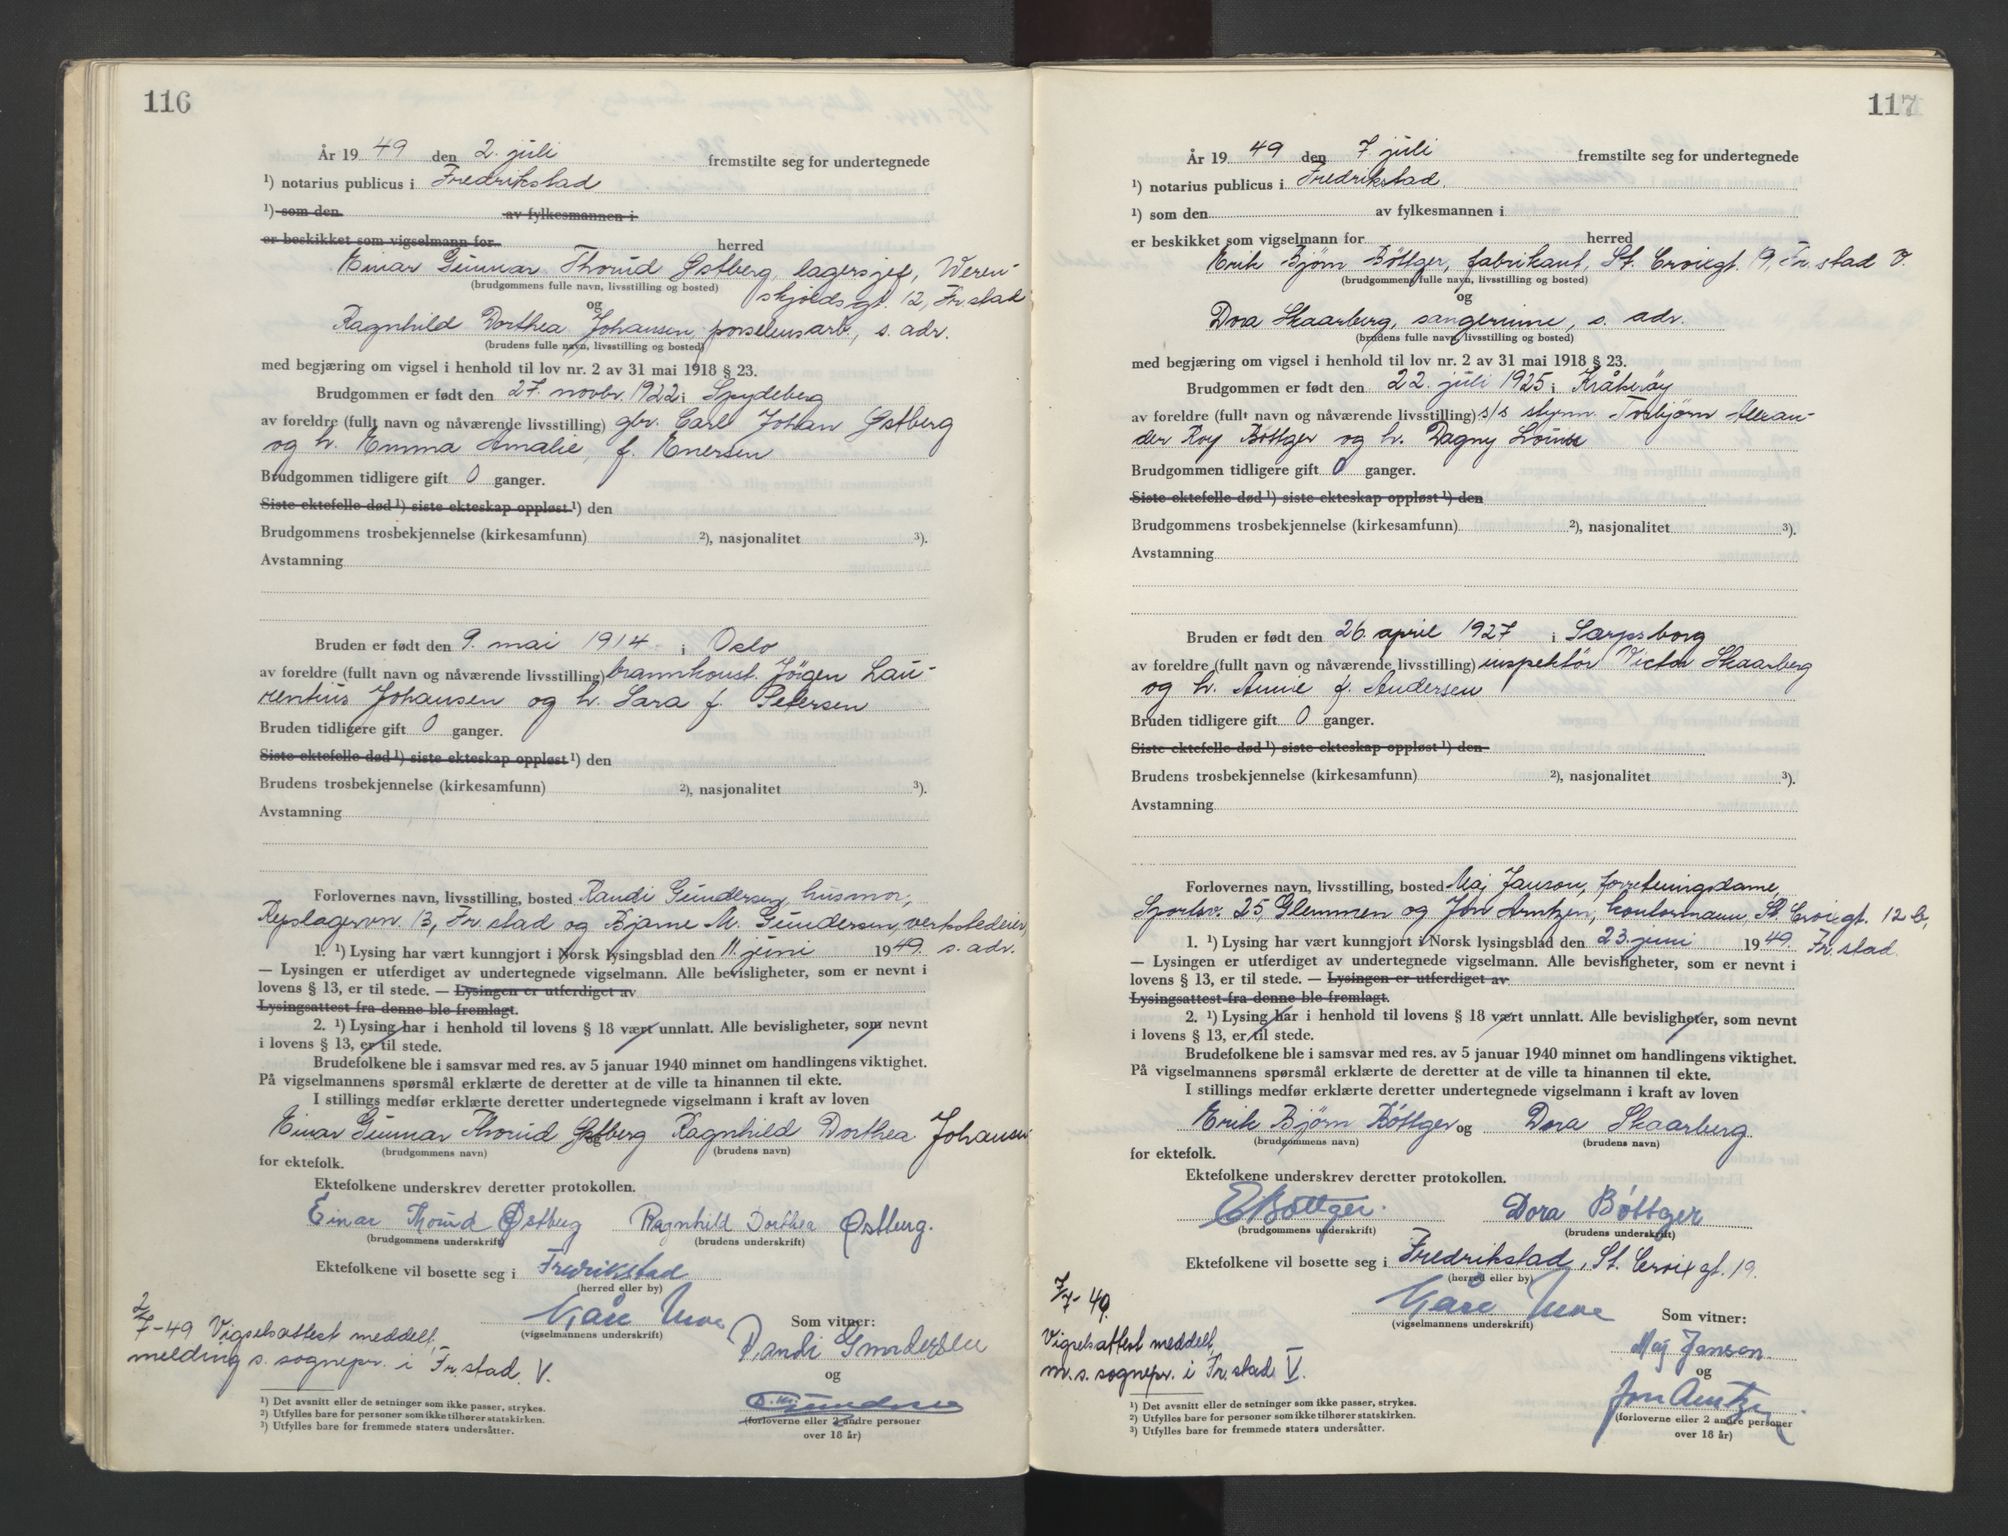 116
År 19 49 den 2. juli fremstilte seg for undertegnede
¹) notarius publicus i Fredrikstad
¹) som den av fylkesmannen i
er beskikket som vigselmann for herred
Einar Gunnar Thorud Østberg, lagersjef, Weren-
(brudgommens fulle navn, livsstilling og bosted) skjoldsgt. 12, Fr.stad
og
Ragnhild Dorthea Johansen, porselensarb., s. adr.
(brudens fulle navn, livsstilling og bosted)
med begjæring om vigsel i henhold til lov nr. 2 av 31 mai 1918 § 23.
Brudgommen er født den 27. novbr. 1922 i Spydeberg
av foreldre (fullt navn og nåværende livsstilling) gbr. Carl Johan Østberg
og h. Emma Amalie, f. Enersen
Brudgommen tidligere gift 0 ganger.
Siste ektefelle død ¹) siste ekteskap oppløst ¹) den
Brudgommens trosbekjennelse (kirkesamfunn) ²), nasjonalitet ³).
Avstamning
Bruden er født den 9. mai 1914 i Oslo
av foreldre (fullt navn og nåværende livsstilling) brannkonst. Jörgen Lau-
rentius Johansen og h. Sara f. Petersen
Bruden tidligere gift 0 ganger.
Siste ektefelle død ¹) siste ekteskap oppløst ¹) den
Brudens trosbekjennelse (kirkesamfunn) ²), nasjonalitet ³).
Avstamning
Forlovernes navn, livsstilling, bosted Randi Gundersen, husmor,
Repslagervn. 13, Fr.stad og Bjarne M. Gundersen, verkstedeier,
1. ¹) Lysing har vært kunngjort i Norsk lysingsblad den 11. juni 1949. s. adr.
— Lysingen er utferdiget av undertegnede vigselmann. Alle bevisligheter, som er nevnt i
lovens § 13, er til stede. — Lysingen er utferdiget av
Lysingsattest fra denne ble fremlagt.
2. ¹) Lysing har i henhold til lovens § 18 vært unnlatt. Alle bevisligheter, som nevnt
i lovens § 13, er til stede.
Brudefolkene ble i samsvar med res. av 5 januar 1940 minnet om handlingens viktighet.
På vigselmannens spørsmål erklærte de deretter at de ville ta hinannen til ekte.
I stillings medfør erklærte deretter undertegnede vigselmann i kraft av loven
Einar Gunnar Thorud Østberg Ragnhild Dorthea Johansen
(brudgommens navn) (brudens navn)
for ektefolk.
Ektefolkene underskrev deretter protokollen.
Einar Thorud Østberg Ragnhild Dorthea Østberg.
(brudgommens underskrift) (brudens underskrift)
Ektefolkene vil bosette seg i Fredrikstad
(herred eller by)
Kåre Moe Som vitner:
(vigselmannens underskrift)
2/7-49 Vigselsattest meddelt, Randi Gundersen
melding s. sognepr. i Fr.stad V. og
Gundersen
(forloverne eller 2 andre personer
over 18 år)
¹) Det avsnitt eller de setninger som ikke passer, strykes.
²) Utfylles bare for personer som ikke tilhører statskirken.
³) Utfylles bare for fremmede staters undersåtter.
117
År 19 49 den 7. juli fremstilte seg for undertegnede
¹) notarius publicus i Fredrikstad.
¹) som den av fylkesmannen i
er beskikket som vigselmann for herred
Erik Bjørn Bôttger, fabrikant, St. Croixgt. 19, Fr.stad V.
(brudgommens fulle navn, livsstilling og bosted)
og
Dora Skaarberg, sangerinne, s. adr.
(brudens fulle navn, livsstilling og bosted)
med begjæring om vigsel i henhold til lov nr. 2 av 31 mai 1918 § 23.
Brudgommen er født den 22. juli 1925 i Kråkerøy
av foreldre (fullt navn og nåværende livsstilling) s/s styrm. Torbjørn Alexan-
der Roy Bôttger og h. Dagny Louise
Brudgommen tidligere gift 0 ganger.
Siste ektefelle død ¹) siste ekteskap oppløst ¹) den
Brudgommens trosbekjennelse (kirkesamfunn) ²), nasjonalitet ³).
Avstamning
Bruden er født den 26. april 1927 i Sarpsborg
av foreldre (fullt navn og nåværende livsstilling) inspektør Victor Skaarberg
og h. Annie f. Andersen
Bruden tidligere gift 0 ganger.
Siste ektefelle død ¹) siste ekteskap oppløst ¹) den
Brudens trosbekjennelse (kirkesamfunn) ²), nasjonalitet ³).
Avstamning
Forlovernes navn, livsstilling, bosted Maj Janson, forretningsdame,
Sportsv. 25, Glemmen og Jon Arntzen, kontormann, St. Croixgt. 12 b,
1. ¹) Lysing har vært kunngjort i Norsk lysingsblad den 23. juni 1949. Fr.stad.
— Lysingen er utferdiget av undertegnede vigselmann. Alle bevisligheter, som er nevnt i
lovens § 13, er til stede. — Lysingen er utferdiget av
Lysingsattest fra denne ble fremlagt.
2. ¹) Lysing har i henhold til lovens § 18 vært unnlatt. Alle bevisligheter, som nevnt
i lovens § 13, er til stede.
Brudefolkene ble i samsvar med res. av 5 januar 1940 minnet om handlingens viktighet.
På vigselmannens spørsmål erklærte de deretter at de ville ta hinannen til ekte.
I stillings medfør erklærte deretter undertegnede vigselmann i kraft av loven
Erik Bjørn Bôttger og Dora Skaarberg
(brudgommens navn) (brudens navn)
for ektefolk.
Ektefolkene underskrev deretter protokollen.
E Bôttger. Dora Bôttger
(brudgommens underskrift) (brudens underskrift)
Ektefolkene vil bosette seg i Fredrikstad, St. Croix gt. 19.
(herred eller by)
7/7-49. Kåre Moe Som vitner:
(vigselmannens underskrift)
Vigselsattest meddelt, Maj Janson.
m. s. sognepr. i Fr.stad V. og
Jon Arntzen
(forloverne eller 2 andre personer
over 18 år)
¹) Det avsnitt eller de setninger som ikke passer, strykes.
²) Utfylles bare for personer som ikke tilhører statskirken.
³) Utfylles bare for fremmede staters undersåtter.